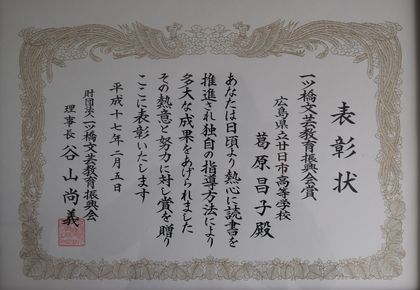 表彰状
一ツ橋文芸教育振興会賞
広島県立廿日市高等学校
葛原昌子殿
あなたは日頃より熱心に読書を
推進され独自の指導方法により
多大な成果をあげられました
その熱意と努力に対し賞を贈り
ここに表彰いたします
平成十七年二月五日
財団法人一ツ橋文芸教育振興会
理事長 谷山尚義